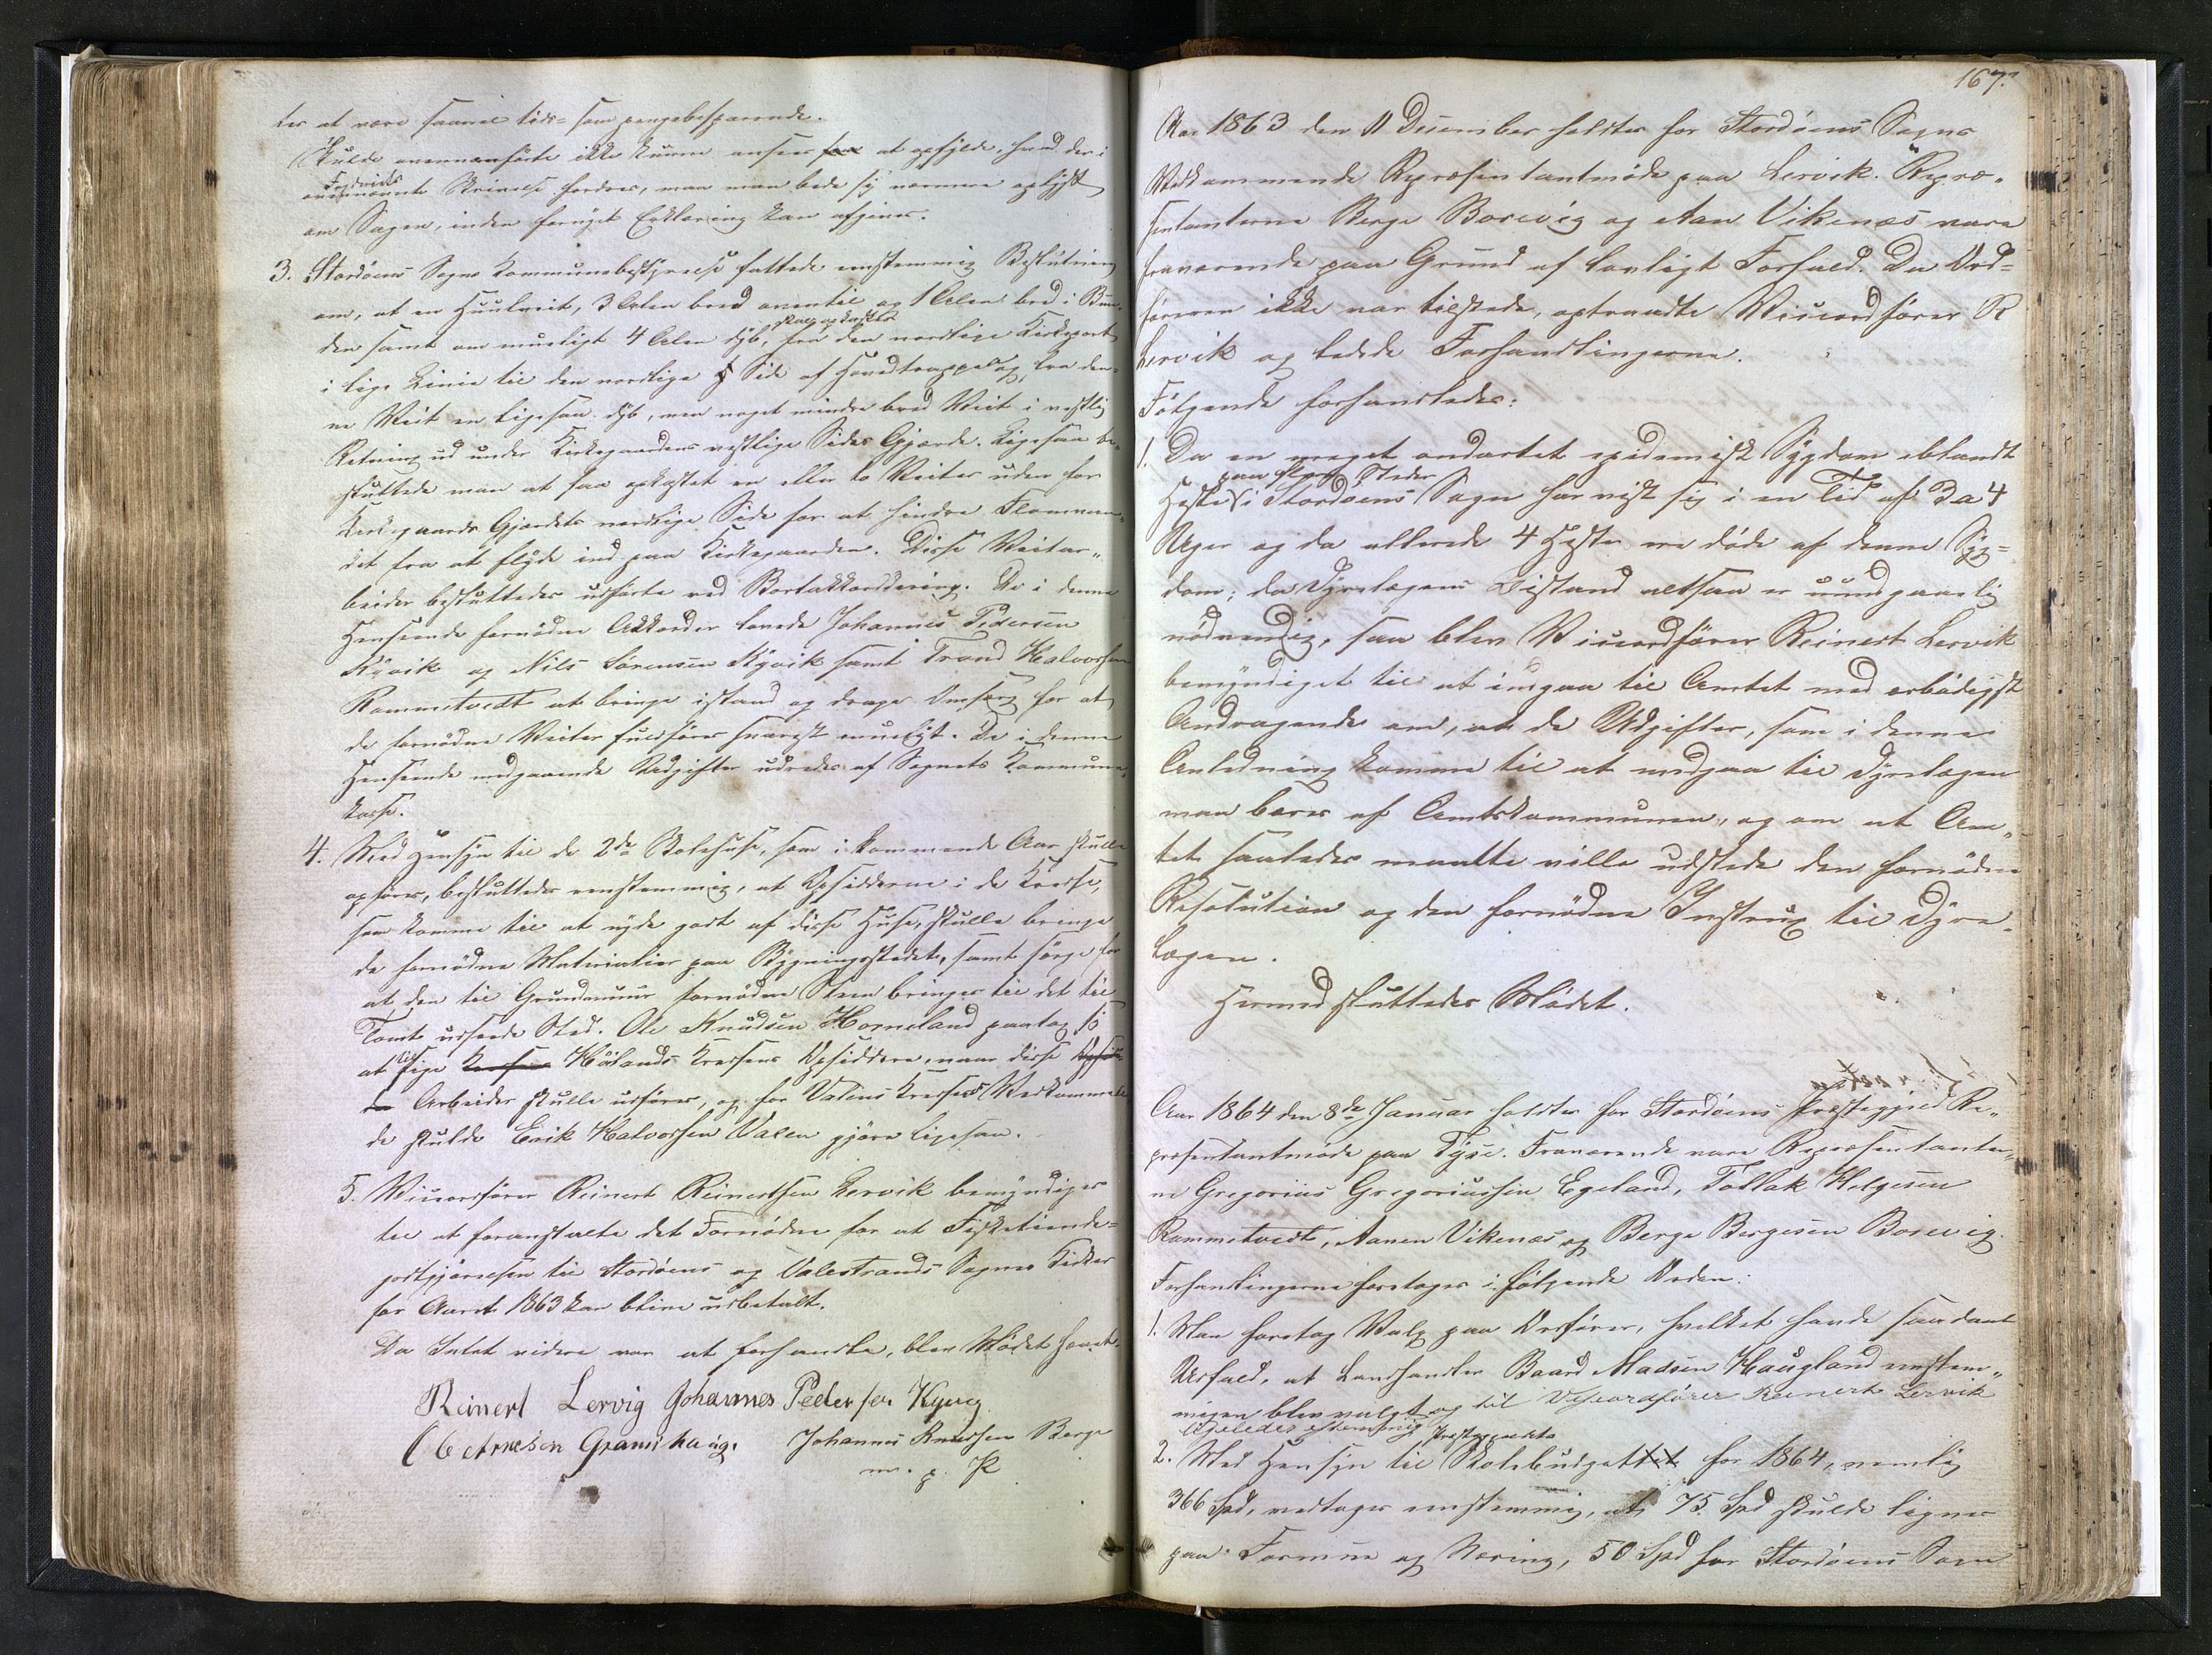 ter at være saavel tids- som pengebesparende.
Skulde ovennævnte ikke kunne ansees at opfylde, hvad der i
Fogderiets
ovennævnte Skrivelse fordres, maa man bede sig nærmere oplyst
om Sagen, inden fornyet Erklæring kan afgives.
3. Stordøens Sogns Kommunebestyrelse fattede enstemmig Beslutning
om, at en Huulveit, 3 Alen bred oventil og 1 Alen bred i Bun-
skal opkastes
den samt om mueligt 4 Alen dyb, fra den nordlige Kirkeport
i lige Linie til den nordlige Side af Hovedtrappen og fra den-
ne Veit en ligesaa dyb, men noget mindre bred Veit i vestlig
Retning ud under Kirkegaardens vestlige Sides Gjærde. Ligesaa be-
sluttede man at faa opkastet en eller to Veiter uden for
Kirkegaards Gjærdets nordlige Side for at hindre Flomvan-
det fra at flyde ind paa Kirkegaarden. Disse Veitar-
beider besluttedes udførte ved Bortakkordering. De i denne
Henseende fornødne Akkorder lovede Johannes Pedersen
Kyvik og Nils Sørensen Kyvik samt Trond Halvorsen
Rommetvedt at bringe istand og drage Omsorg for at
de fornødne Veiter fuldføres snarest mueligt. De i denne
Henseende medgaaende Udgifter udredes af Sognets Kommune-
kasse.
4. Med Hensyn til de 2de Skolehuse, som i kommende Aar skulle
opføres, besluttedes enstemmig, at Opsidderne i de Kredse,
som komme til at nyde godt af disse Huse, skulle bringe
de fornødne Materialier paa Bygningsstedet, samt sørge for
at den til Grundmuur fornødne Steen bringes til det til
Tomt udseede Sted. Ole Knudsen Horneland paatog sig
at tilsige Hålands Kredsens Opsiddere, naar disse
Arbeider skulle udføres, og for Valens Kredses Vedkommen-
de skulde Erik Halvorsen Valen gjøre ligesaa.
5. Viceordfører Reinert Reinertsen Lervik bemyndiges
til at foranstalte det Fornødne for at Fisketiende-
godtgjørelsen til Stordøens og Valestrands Sognes Kirker
for Aaret 1863 kan blive udbetalt.
Da Intet videre var at forhandle, blev Mødet hævet.
Reinert Lervig Johannes Pedersen Kyvig
Ole Arnesen Gramshaug. Johannes Knudsen Berge
m. p. P
167.
Aar 1863 den 11 December holdtes for Stordøens Sogns
Vedkommende Repræsentantmøde paa Lervik. Repræ-
sentanterne Berge Borevig og Aan Vikenæs vare
fraværende paa Grund af lovligt Forfald. Da Ord-
føreren ikke var tilstede, optraadte Viceordfører R
Lervik og ledede Forhandlingerne.
Følgende forhandledes:
1. Da en meget ondartet epidemisk Sygdom iblandt
paa flere Steder
Heste i Stordøens Sogn har viist sig i en Tid af 3 a 4
Uger og da allerede 4 Heste ere døde af denne Syg-
dom; da Dyrelægens Bistand altsaa er uundgaaelig
nødvendig, saa blev Viceordfører Reinert Lervik
bemyndiget til at indgaa til Amtet med ærbødigst
Andragende om, at de Udgifter, som i denne
Anledning komme til at medgaa til Dyrelægen
maa bæres af Amtskommunen, og om at Am-
tet saaledes maatte ville udstede den fornødne
Resolution og den fornødne Instrux til Dyre-
lægen.
Hermed sluttedes Mødet.
Aar 1864 den 8de Januar holdtes for Stordøens Præstegjeld Re-
præsentantmøde paa Tyse. Fraværende vare Repræsentanter-
ne Gregorius Gregoriussen Egeland, Tollak Helgesen
Rommetvedt, Aanen Vikenæs og Berge Bergesen Borevig.
Forhandlingerne foretoges i følgende Orden:
1. Man foretog Valg paa Ordfører, hvilket havde saadant
Udfald, at Landhandler Baard Madsen Haugland enstem-
migen blev valgt og til Viseordfører Reinert Lervik
ligeledes estemmig
Præstegjeldets
2. Med Hensyn til Skolebudgettet for 1864, nemlig
366 Spd, vedtoges enstemmig, at 75 Spd skulde lignes
paa Formue og Næring, 50 Spd for Stordøens Sogn